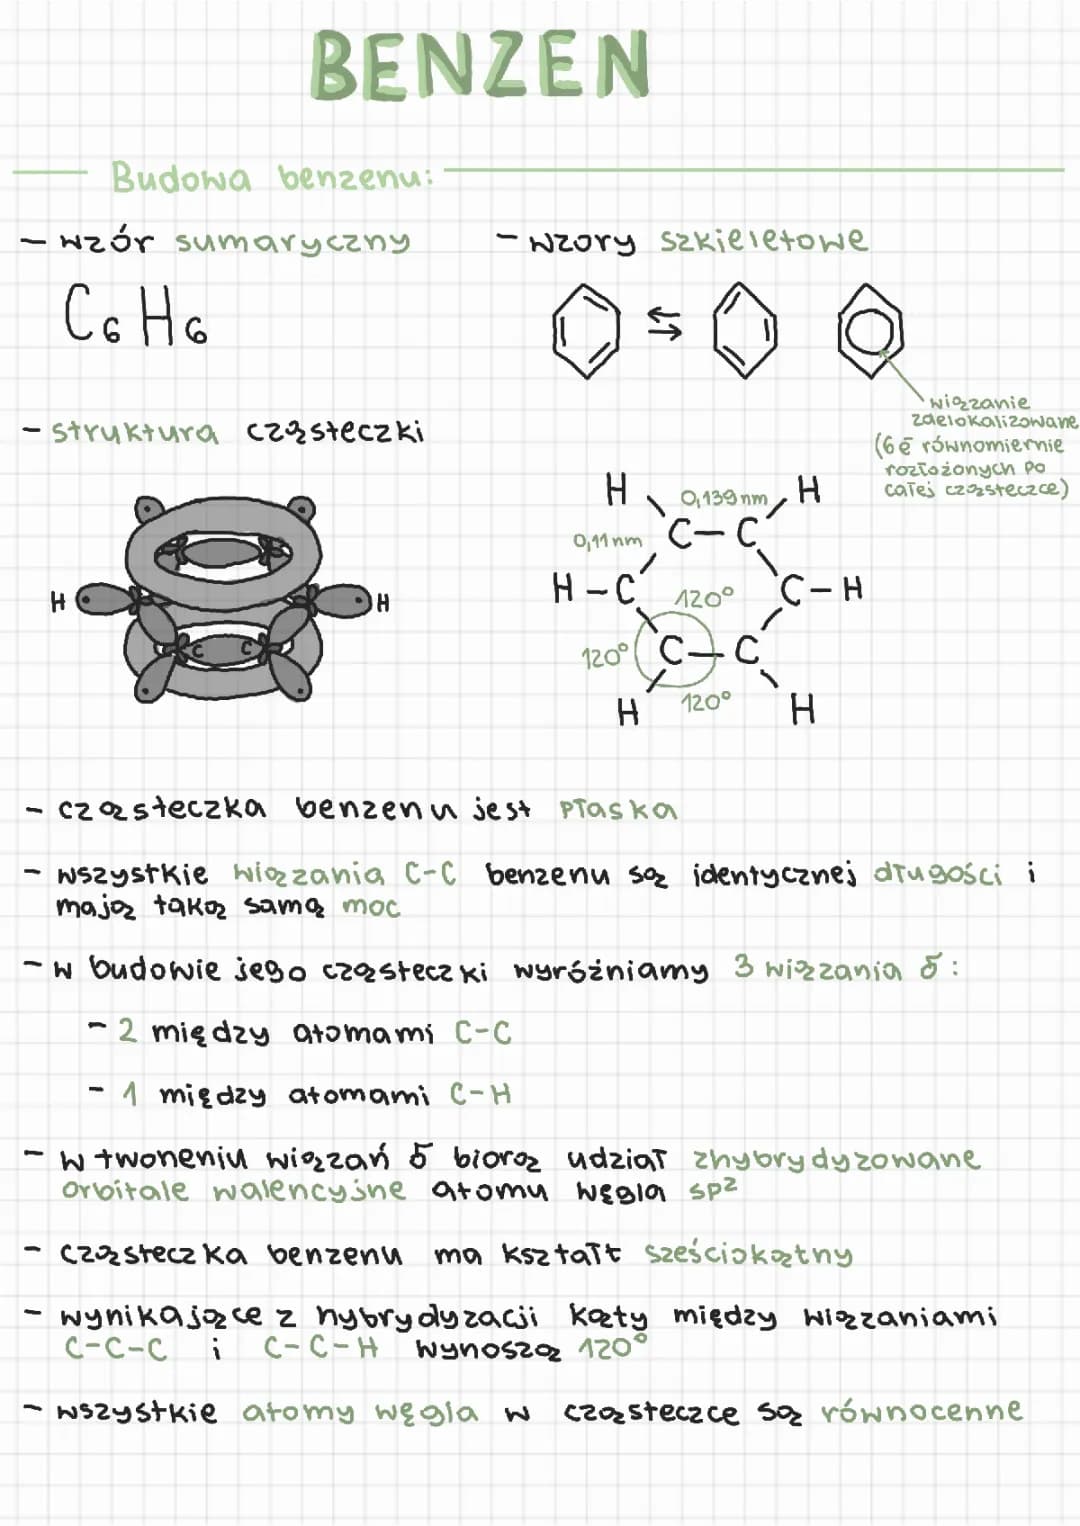 BENZEN
Budowa benzenu:
- wzór sumaryczny
C6H6
- wzory szkieletowe
wiązanie
zdelokalizowane
(6ē równomiernie
rozłożonych po
całej cząsteczce)
- struktura cząsteczki
H
H
C
C
H
0,139 nm
H
0,11 nm
C-C
H-C
120°
C-H
120°
C-C
H
120°
H
- cząsteczka benzenu jest płaska
- wszystkie wiązania C-C benzenu są identycznej długości i
mają taką samą moc
- w budowie jego cząsteczki wyróżniamy 3 wiązania δ:
- 2 między atomami C-C
- 1 między atomami C-H
- w twoneniu wiązań δ biorą udział zhybrydyzowane
orbitale walencyjne atomu węgla sp²
- cząsteczka benzenu ma kształt sześciokątny
- wynikające z hybrydyzacji kąty między wiązaniami
C-C-C i C-C-H wynoszą 120°
- wszystkie atomy węgla w cząsteczce są równocenne